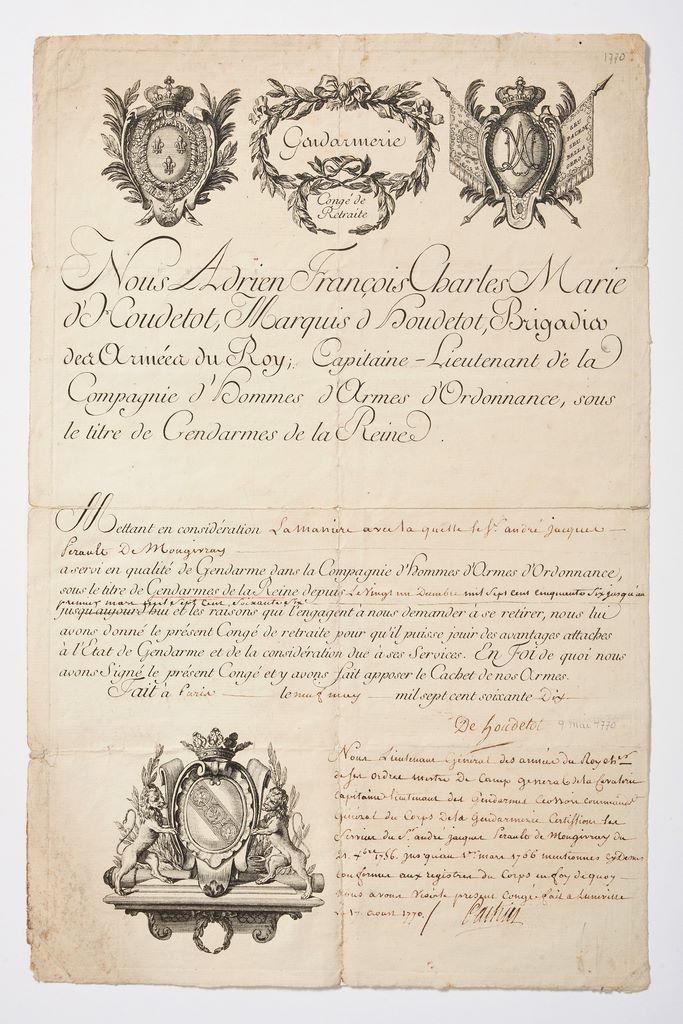 1770
Gendarmerie
Congé de
Retraite
Nous Adrien François Charles Marie
d'Houdetot, Marquis d'houdetot, Brigadier
des Armées du Roy; Capitaine-Lieutenant de la
Compagnie d'hommes d'Armes d'Ordonnance, sous
le titre de Gendarmes de la Reine.
Mettant en considération La maniere avec la quelle le Sr. andré jacques
Perault De Mongivray
a servi en qualité de Gendarme dans la Compagnie d'hommes d'Armes d'Ordonnance,
sous le titre de Gendarmes de la Reine depuis Le vingt un mil sept cent cinquante Six jusqu'au
premier mars mil sept cent soixante six
jusqu'aujourd'hui et les raisons qui l'engagent à nous demander à se retirer, nous lui
avons donné le présent Congé de retraite pour qu'il puisse jouir des avantages attachés
à l'Etat de Gendarme et de la considération due à ses Services. En Foi de quoi nous
avons Signé le présent Congé et y avons fait apposer le Cachet de nos Armes.
Fait à Paris le neuf may mil sept cent soixante Dix
De houdetot 9 mai 1770
Nous Lieutenant General des armées du Roy
de ses ordres mestre De Camp general de la Cavalerie
Capitaine lieutenant des Gendarmes Ecossois commandt
general du Corps De la Gendarmerie Certiffions les
Services du Sr. andré jacques Perault de Mongivray du
21. Xbre 1756. jusquau 1er mars 1766 mentionnés cy dessus
conformes aux registres du Corps en foy de quoy
nous avons le present Congé fait a Luneville
le 17. aoust 1770.